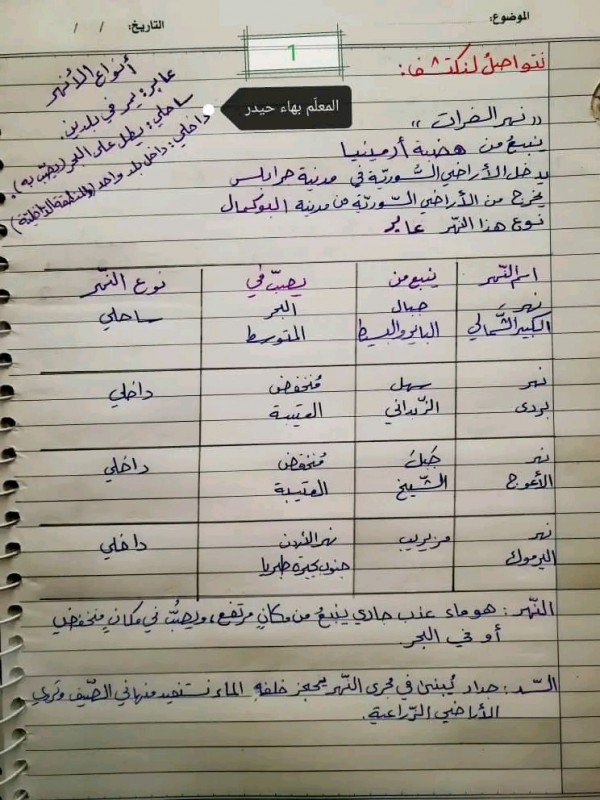 الموضوع:
التاريخ: / /
1
المعلّم بهاء حيدر
نتواصلُ لنكتشف:
أنواع الأنهر
عابر: يمر في بلدين.
ساحلي: يطل على البحر (ويصبّ به).
داخلي: داخل بلد واحد (المنطقة الداخليّة)
"نهر الفرات"
ينبعُ من هضبة أرمينيا
يدخل الأراضي السّوريّة في مدينة جرابلس
يخرج من الأراضي السّوريّة من مدينة البوكمال
نوع هذا النّهر عابر
اسم النّهر ينبع من يصبّ في نوع النّهر
نهر جبال البحر ساحلي
الكبير الشّمالي الباير والبسيط المتوسط
نهر سهل مُنخفض داخلي
بردى الزّبداني العتيبة
نهر جَبل مُنخفض داخلي
الأعوج الشّيخ العتيبة
نهر مزيريب نهر الأردن داخلي
اليرموك جنوب بحيرة طبريا
النّهر: هو ماء عذب جاري ينبعُ من مكانٍ مرتفع، ويصبُّ في مكانٍ منخفضٍ
أو في البحر
السّد: جدار يُبنى في مجرى النّهر يحجز خلفهِ الماء نستفيد منها في الصّيف وتروي
الأراضي الزّراعية.